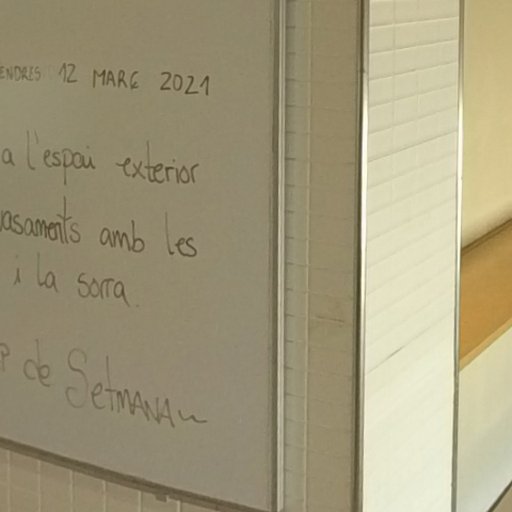 ENDRES 12 MARÇ 2021
a l'espai exterior
vasaments amb les
i la sorra.
P de SetMANA